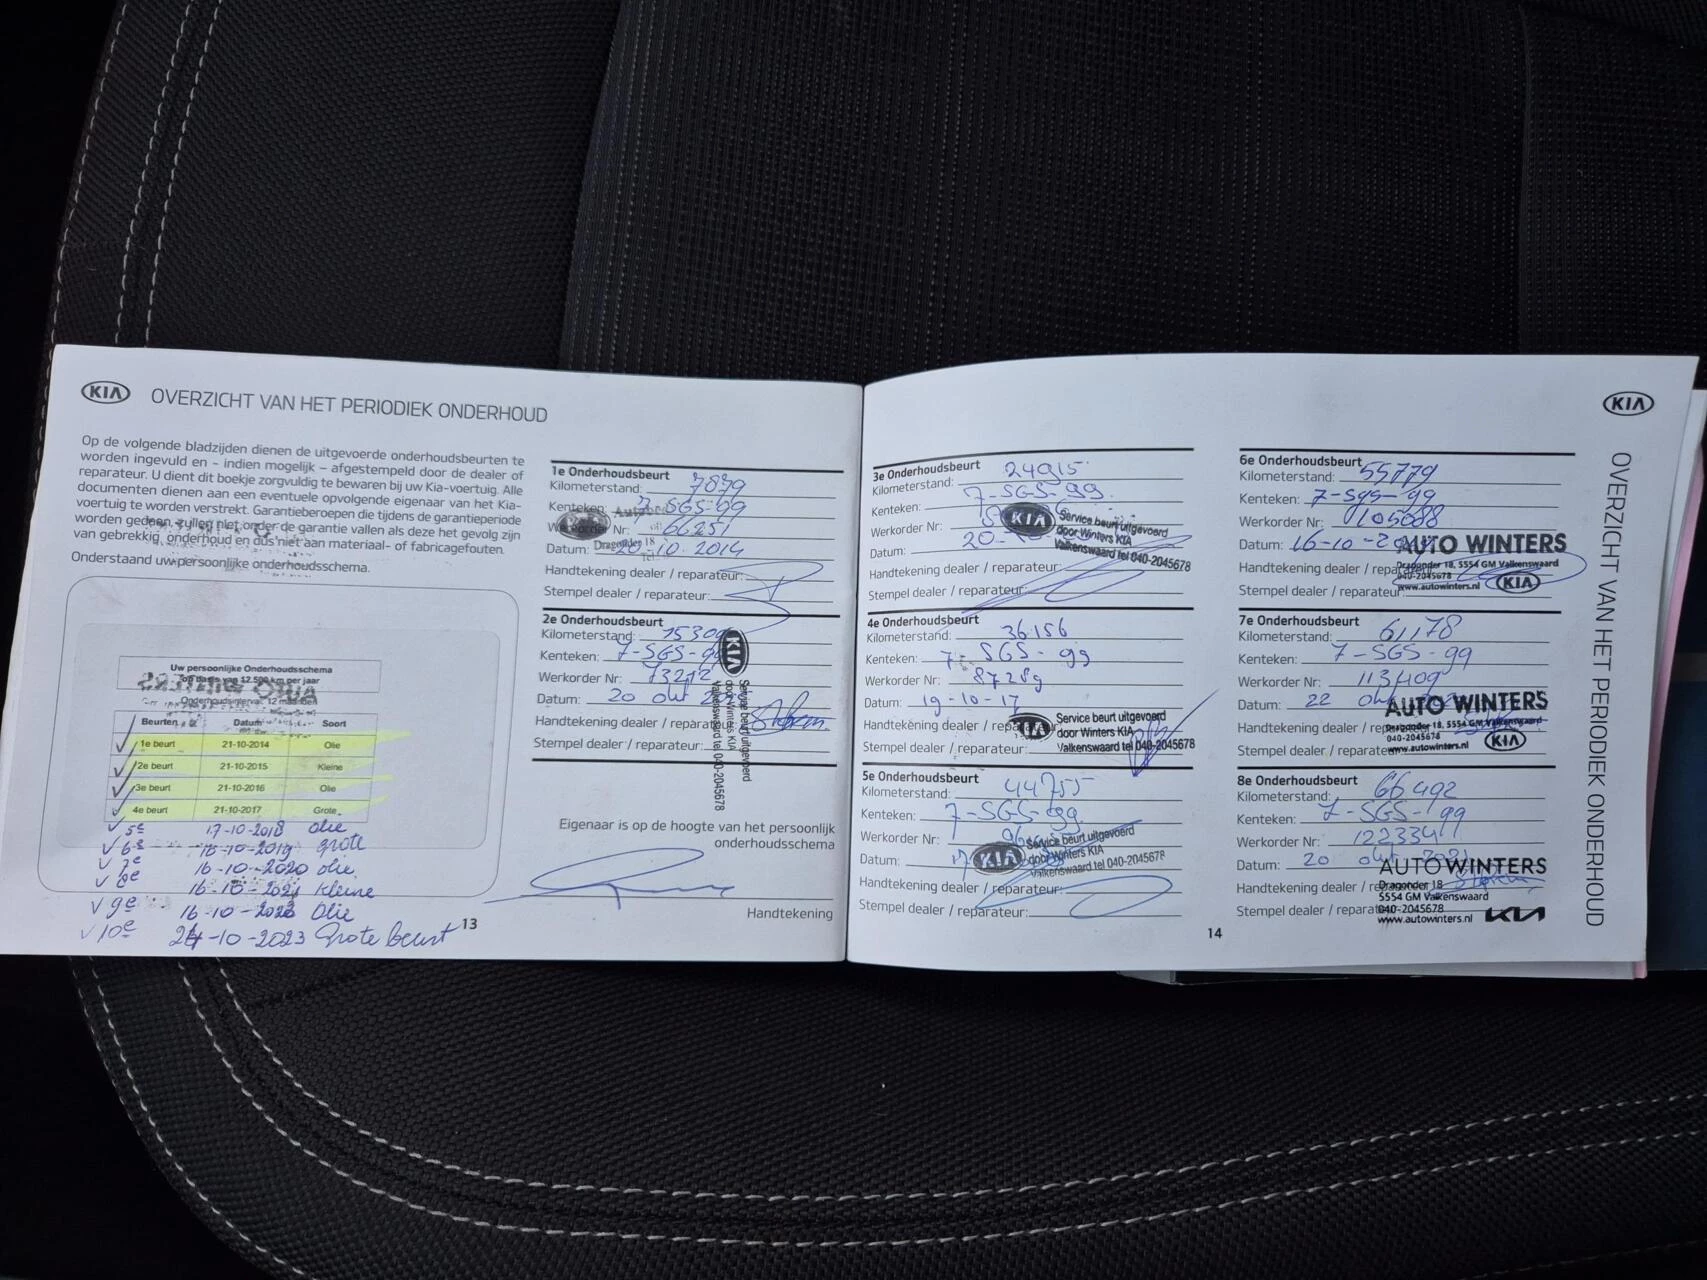 KIA
OVERZICHT VAN HET PERIODIEK ONDERHOUD
Op de volgende bladzijden dienen de uitgevoerde onderhoudsbeurten te
worden ingevuld en - indien mogelijk - afgestempeld door de dealer of
reparateur. U dient dit boekje zorgvuldig te bewaren bij uw Kia-voertuig. Alle
documenten dienen aan een eventuele opvolgende eigenaar van het Kia-
voertuig te worden verstrekt. Garantieberoepen die tijdens de garantieperiode
worden gedaan, zullen niet onder de garantie vallen als deze het gevolg zijn
van gebrekkig onderhoud en dus niet aan materiaal- of fabricagefouten.
Onderstaand uw persoonlijke onderhoudsschema.
Uw persoonlijke Onderhoudsschema
op basis van 12.500 km per jaar
Onderhoudsinterval: 12 maanden
Beurten Datum Soort
1e beurt 21-10-2014 Olie
2e beurt 21-10-2015 Kleine
3e beurt 21-10-2016 Olie
4e beurt 21-10-2017 Grote
5e 17-10-2018 olie
6e 16-10-2019 grote
7e 16-10-2020 olie
8e 16-10-2021 Kleine
9e 16-10-2022 Olie
10e 24-10-2023 Grote beurt
13
1e Onderhoudsbeurt
Kilometerstand: 7879
Kenteken: 7-SGS-99
Werkorder Nr: 66251
Datum: 20.10.2014
Dragonder 18
Handtekening dealer / reparateur:
Stempel dealer / reparateur:
2e Onderhoudsbeurt
Kilometerstand: 15309
Kenteken: 7-SGS-99
Werkorder Nr: 73212
Datum: 20 okt
Handtekening dealer / reparateur
Stempel dealer / reparateur:
KIA
Service beurt uitgevoerd
door Winters KIA
Valkenswaard tel 040-2045678
Eigenaar is op de hoogte van het persoonlijk
onderhoudsschema
Handtekening
3e Onderhoudsbeurt
Kilometerstand: 24915
Kenteken: 7-SGS-99
Werkorder Nr:
Datum: 20-
KIA
Service beurt uitgevoerd
door Winters KIA
Valkenswaard tel 040-2045678
Handtekening dealer / reparateur:
Stempel dealer / reparateur:
4e Onderhoudsbeurt
Kilometerstand: 36156
Kenteken: 7-SGS-99
Werkorder Nr: 87289
Datum: 19-10-17
Handtekening dealer / reparateur
Stempel dealer / reparateur:
KIA
Service beurt uitgevoerd
door Winters KIA
Valkenswaard tel 040-2045678
5e Onderhoudsbeurt
Kilometerstand: 44755
Kenteken: 7-SGS-99
Werkorder Nr:
Datum: 17
KIA
Service beurt uitgevoerd
door Winters KIA
Valkenswaard tel 040-2045678
Handtekening dealer / reparateur:
Stempel dealer / reparateur:
14
6e Onderhoudsbeurt
Kilometerstand: 55779
Kenteken: 7-SGS-99
Werkorder Nr: 105088
Datum: 16-10-
AUTO WINTERS
Dragonder 18, 5554 GM Valkenswaard
040-2045678
www.autowinters.nl
KIA
Handtekening dealer / reparateur
Stempel dealer / reparateur
7e Onderhoudsbeurt
Kilometerstand: 61178
Kenteken: 7-SGS-99
Werkorder Nr: 113409
Datum: 22 okt
AUTO WINTERS
Dragonder 18, 5554 GM Valkenswaard
040-2045678
www.autowinters.nl
KIA
Handtekening dealer / reparateur
Stempel dealer / reparateur
8e Onderhoudsbeurt
Kilometerstand: 66492
Kenteken: 7-SGS-99
Werkorder Nr:
Datum: 20 okt 2021
AUTO WINTERS
Dragonder 18
5554 GM Valkenswaard
040-2045678
www.autowinters.nl
KIA
Handtekening dealer / reparateur
Stempel dealer / reparateur
KIA
OVERZICHT VAN HET PERIODIEK ONDERHOUD